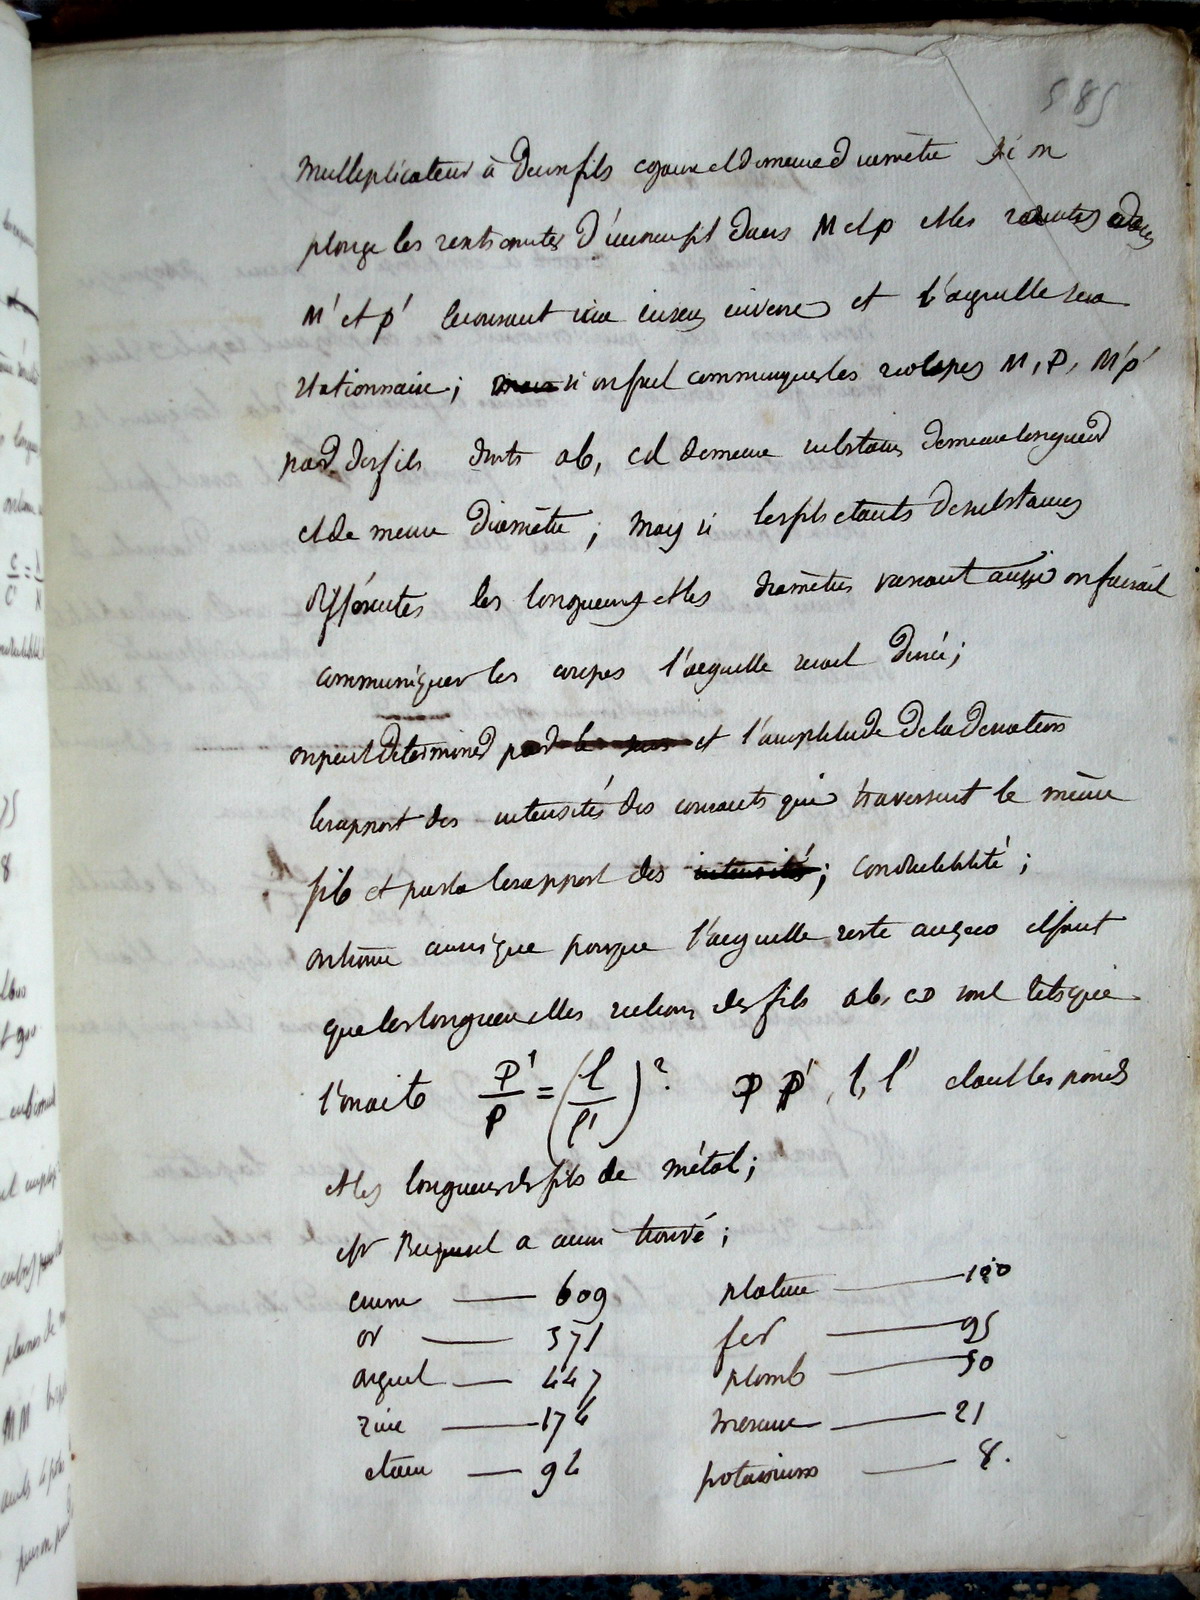 585
multiplicateur à deux fils egaux et de meme diametre si on
plonge les extremités d'un fil dans M et p et les
M' et p' le courant sera en sens inverse et l'aiguille sera
stationnaire; si on fait communiquer les M, P, M'p'
par des fils ab, cd de meme substance de meme longueur
et de meme diamètre; mais si les fils etants de substances
différentes les longueurs et les diamètres variant aussi on faisait
communiquer les coupes l'aiguille serait deviée;
on peut determiner par le sens et l'amplitude de la deviation
le rapport des intensités des courants qui traversent le même
fil et par la le rapport des intensités; conductibilité;
on trouve aussi que pour que l'aiguille reste au zero il faut
que les longueurs et les sections des fils ab, cd sont tels que
l'on ait P'/P = (l/l')². P P', l, l' etant les poids
et les longueurs des fils de métal;
Mr Becquerel a aussi trouvé;
cuivre — 609 platine — 100
or — 571 fer — 95
argent — 447 plomb — 50
zinc — 174 mercure — 21
etain — 94 potassium — 8.